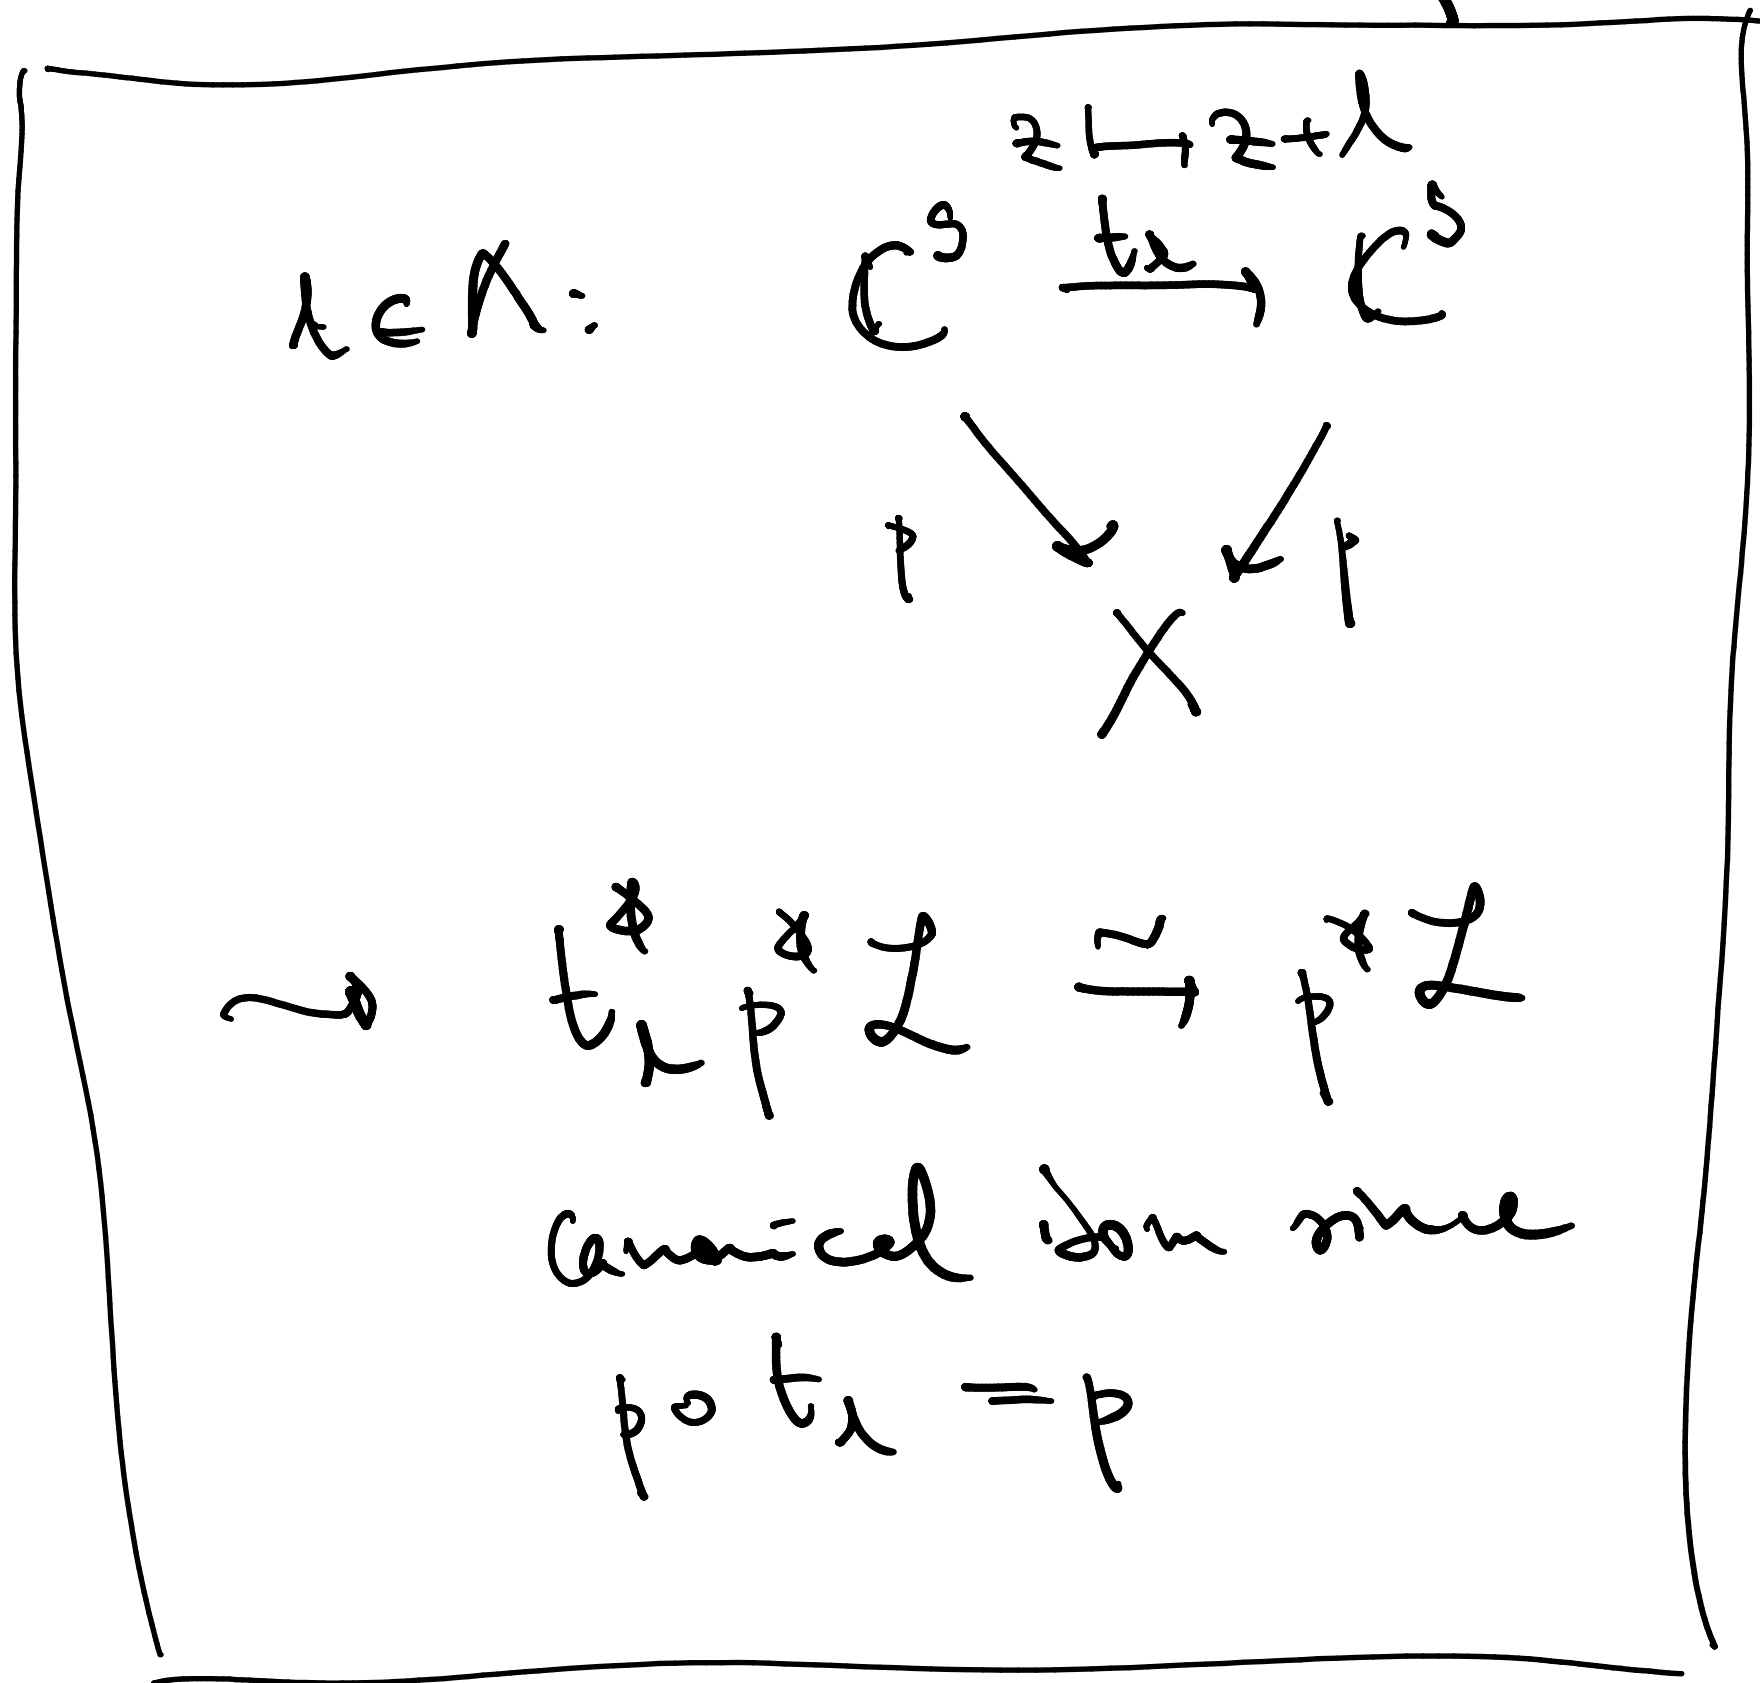 z ↦ z+λ
λ ∈ Λ: ℂ^g \xrightarrow{t_λ} ℂ^g
p ↘ ↙ p
X
⇝ t_λ^* p^* ℒ \xrightarrow{∼} p^* ℒ
canonical isom since
p ∘ t_λ = p